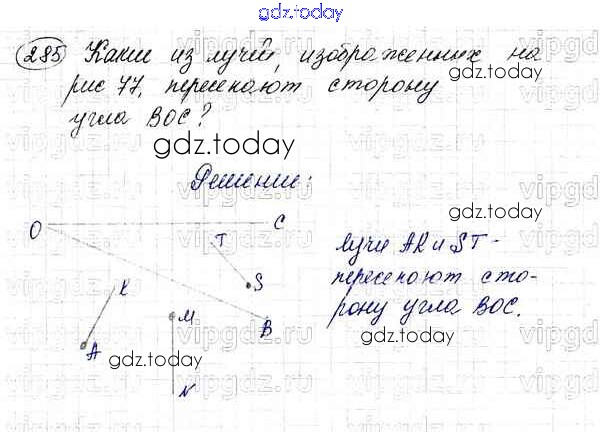 gdz.today
285 Какие из лучей, изображенных на
рис 77, пересекают сторону
gdz.today
угла BOC?
gdz.today
Решение:
gdz.today
O C
T
Лучи AK и ST -
S
пересекают сто-
K
рону угла BOC.
M
B
A
gdz.today
gdz.today
N
vipgdz.ru